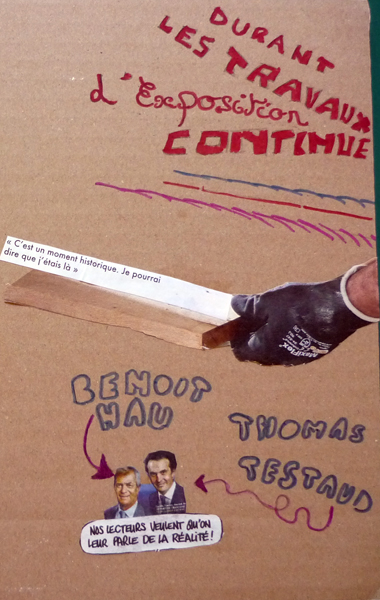 DURANT
LES TRAVAUX
d'Exposition
CONTINUE
« C'est un moment historique. Je pourrai
dire que j'étais là »
MAXIFLEX
BENOIT
HAU
THOMAS
TESTAUD
NOS LECTEURS VEULENT QU'ON
LEUR PARLE DE LA RÉALITÉ !